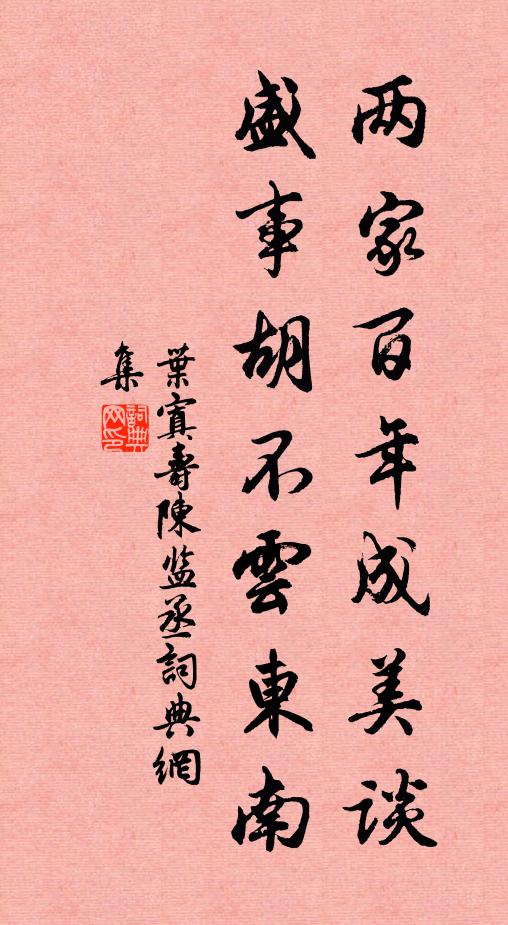 两家百年成美谈
盛事胡不雲東南
葉寘壽陳监丞詞典網
集
詞典
网印